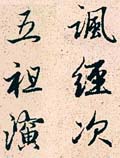 諷經次
五祖演